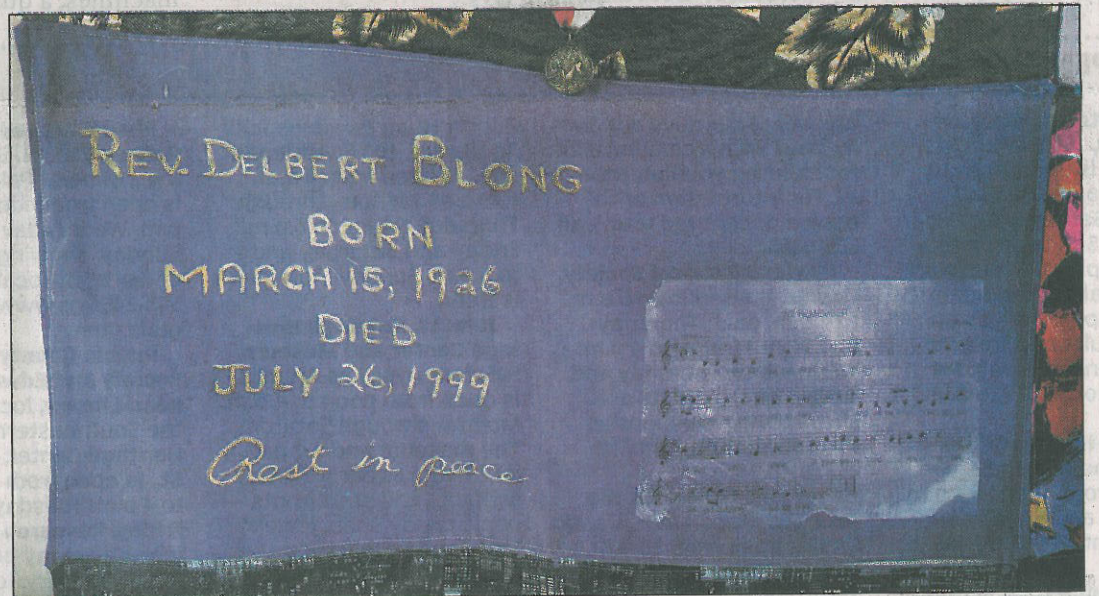 REV. DELBERT BLONG
BORN
MARCH 15, 1926
DIED
JULY 26, 1999
Rest in peace
REMEMBER